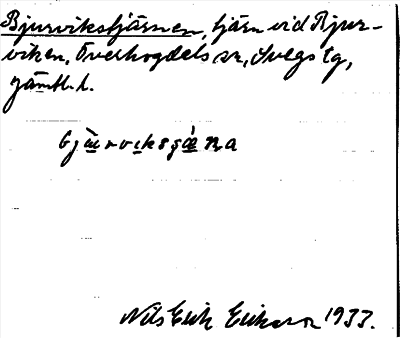 Bjurvikstjärnen, tjärn vid Bjur-
viken, Överhogdals sn, Svegs tg,
Jämtl. l.
Nils Erik Eriksson 1933.